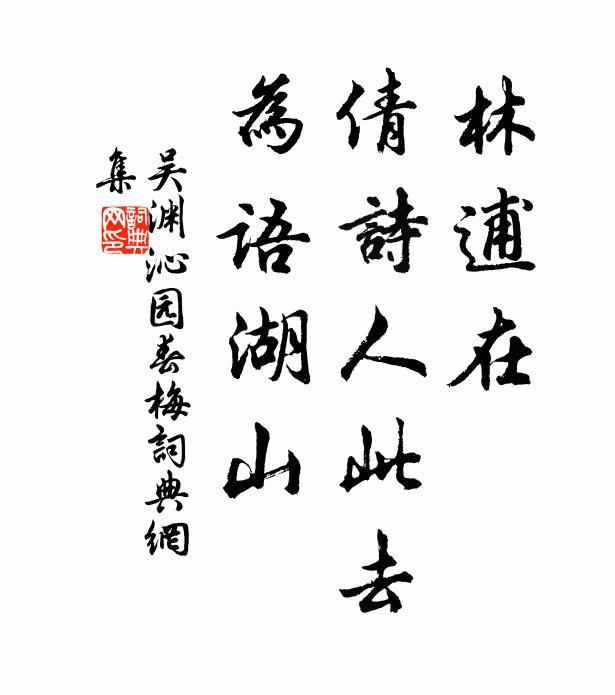 林逋在
倩詩人此去
為語湖山
吴渊沁园春梅詞典網
集
詞典
网印